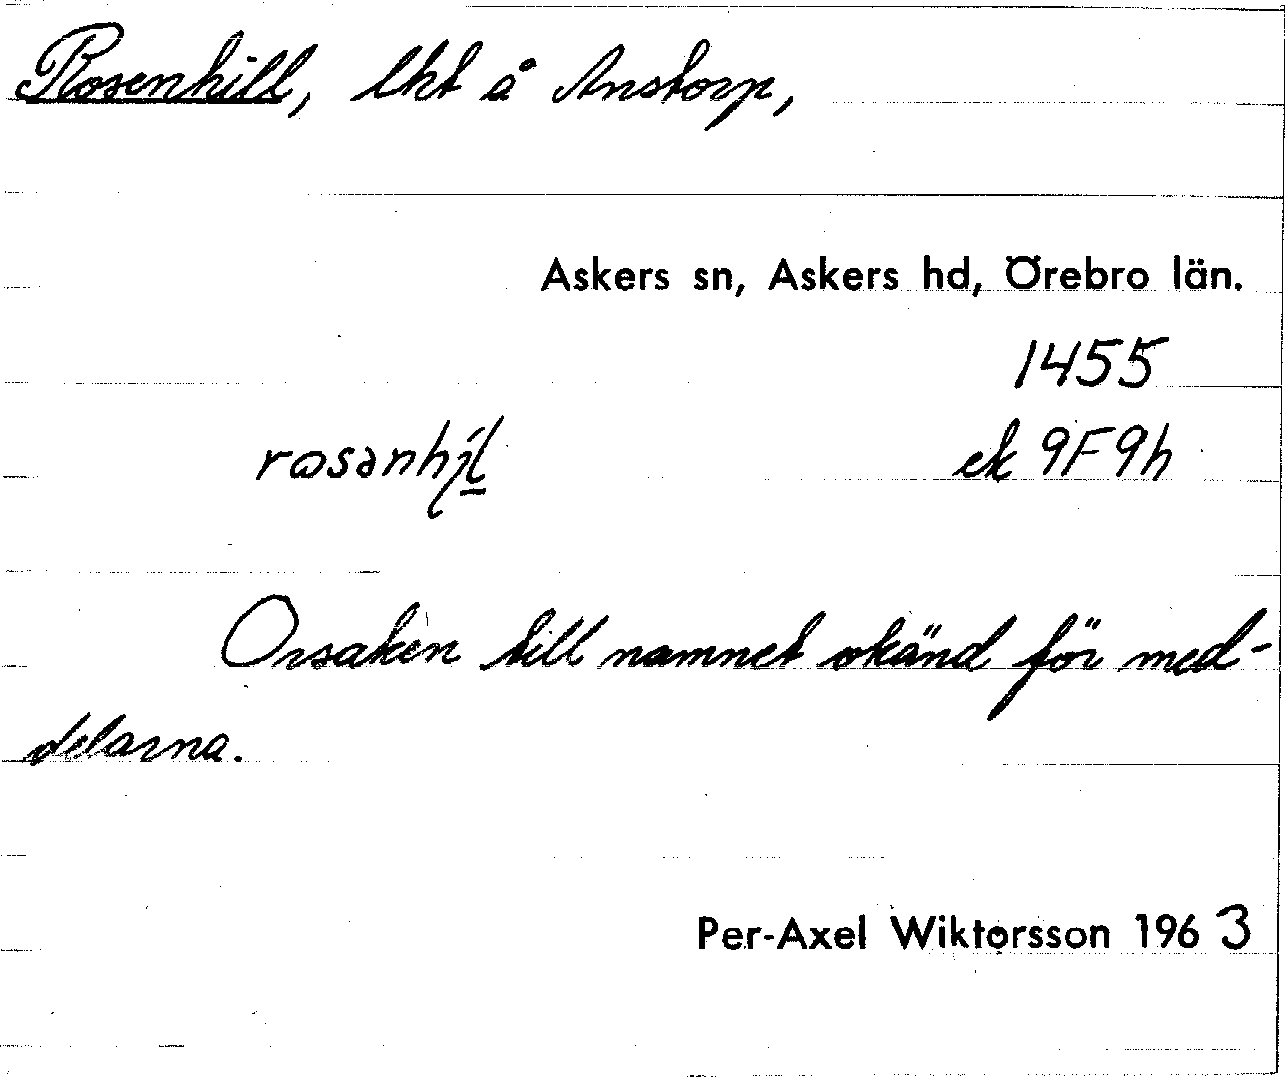 Rosenhill, lht å Anstorp,
Askers sn, Askers hd, Örebro län.
1455
rosanhil
ek 9F9h
Orsaken till namnet okänd för med-
delarna.
Per-Axel Wiktorsson 1963